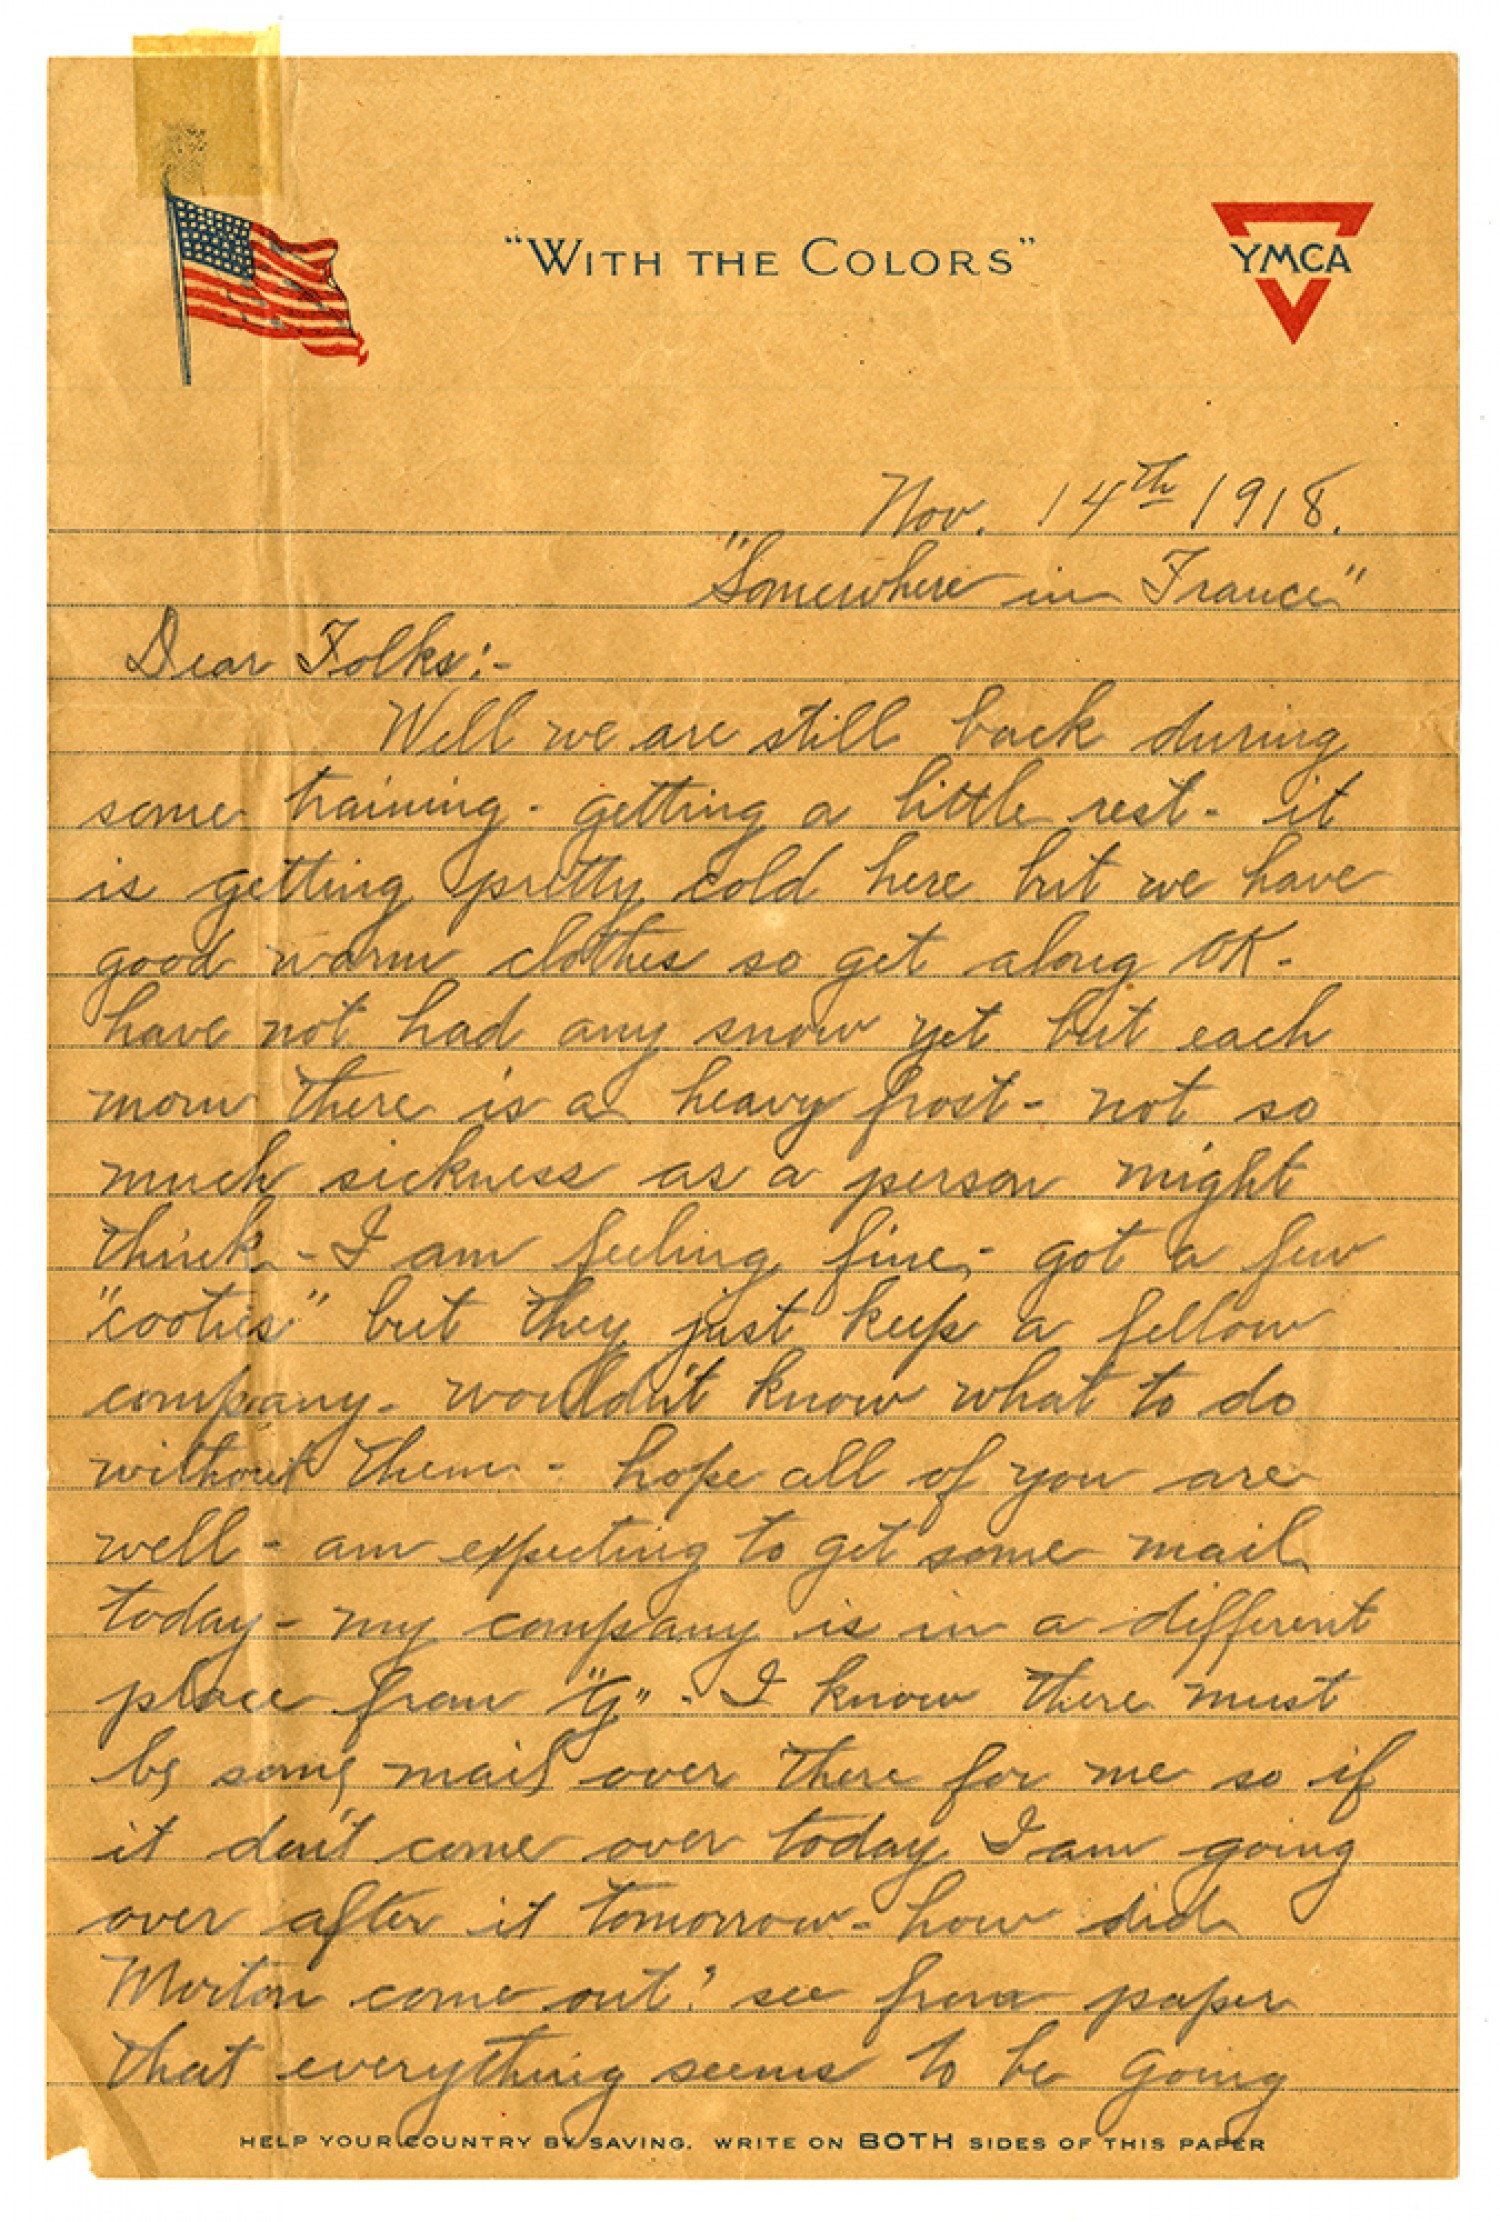 "WITH THE COLORS"
YMCA
Nov. 14th 1918.
"Somewhere in France"
Dear Folks:-
Well we are still back during
some training - getting a little rest - it
is getting pretty cold here but we have
good warm clothes so get along OK -
have not had any snow yet but each
morn there is a heavy frost - not so
much sickness as a person might
think - I am feeling fine - got a few
"cooties" but they just keep a fellow
company - wouldn't know what to do
without them - hope all of you are
well - am expecting to get some mail
today - my company is in a different
place from "G" - I know there must
be some mail over there for me so if
it don't come over today I am going
over after it tomorrow - how did
Morton come out? see from paper
that everything seems to be going
HELP YOUR COUNTRY BY SAVING. WRITE ON BOTH SIDES OF THIS PAPER